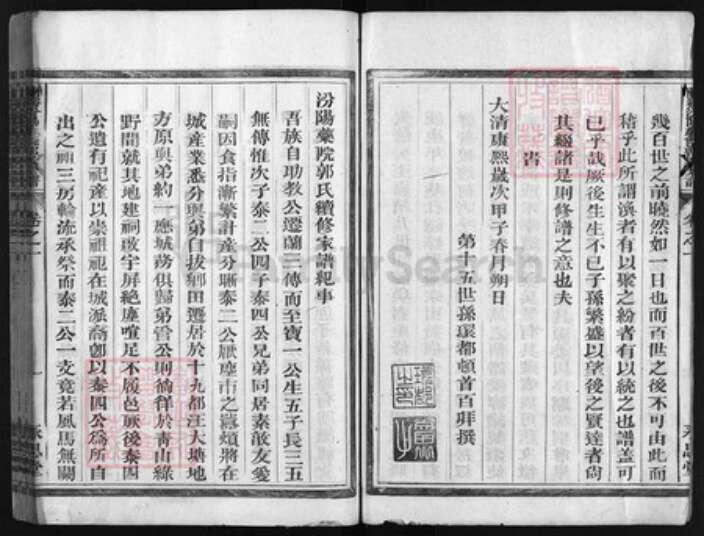 幾百世之前曉然如一日也而百世之後不可由此而
稽乎此所謂渙者有以聚之紛者有以統之也譜蓋可
已乎哉厥後生生不已子孫繁盛以望後之賢達者尙
其繼諸是則修譜之意也夫
旹
大清康熙歲次甲子春月朔日
第十五世孫環都頓首百拜撰
汾陽藥院郭氏續修家譜紀事
吾族自助教公遷蘭三傳而至寶一公生五子長三五
無傳惟次子泰二公四子泰四公兄弟同居素敵友愛
嗣因食指漸繁計產分晰泰二公厭塵市之囂煩將在
城產業悉分與弟自拔鄉田遷居於十九都汪大塘地
方原與弟約一應城務俱歸弟管公則徜徉於靑山綠
野間就其地建祠啟宇屏絶塵喧足不履邑厥後泰四
公遺有祀產以崇祖祀在城派裔郎以泰四公爲所自
出之祖三房輪流承祭而泰二公一支竟若風馬無關
FamilySearch